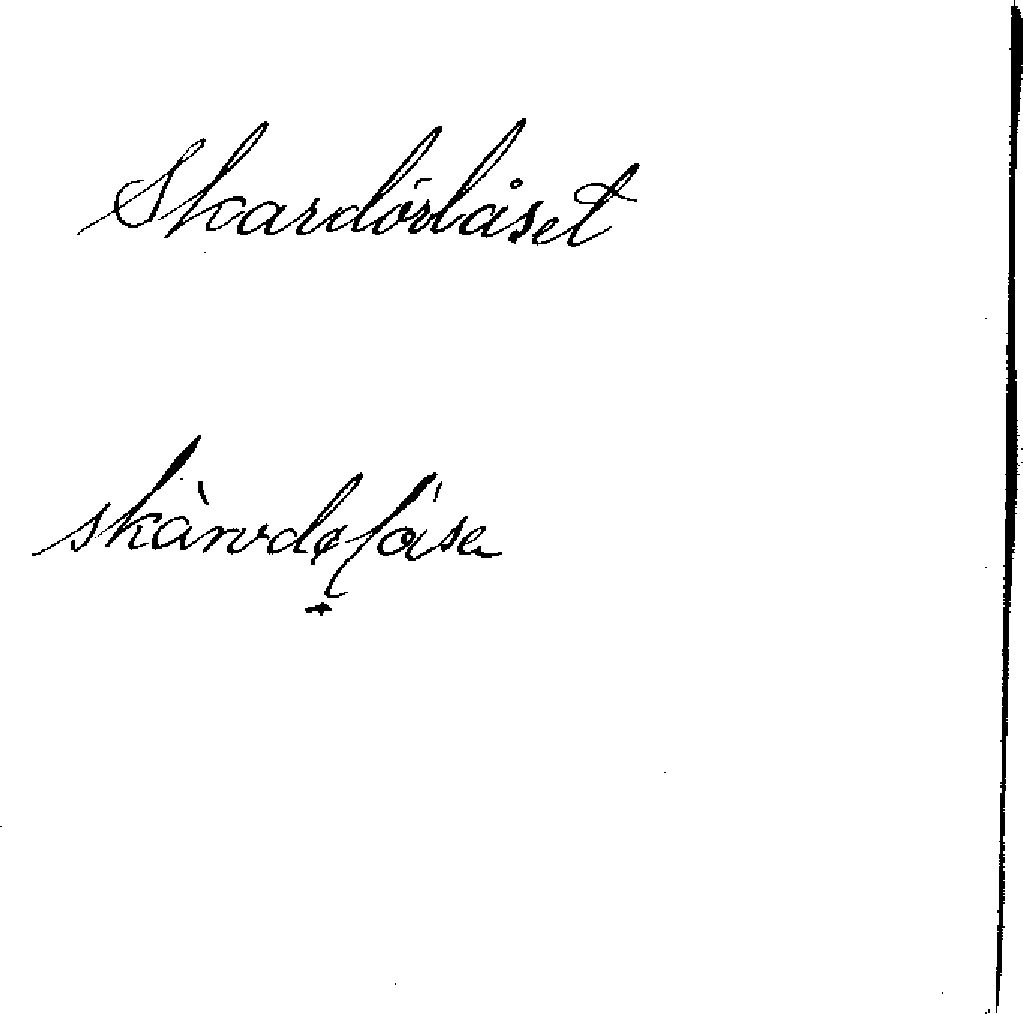 Skardörlåset
skànrdəlåsa